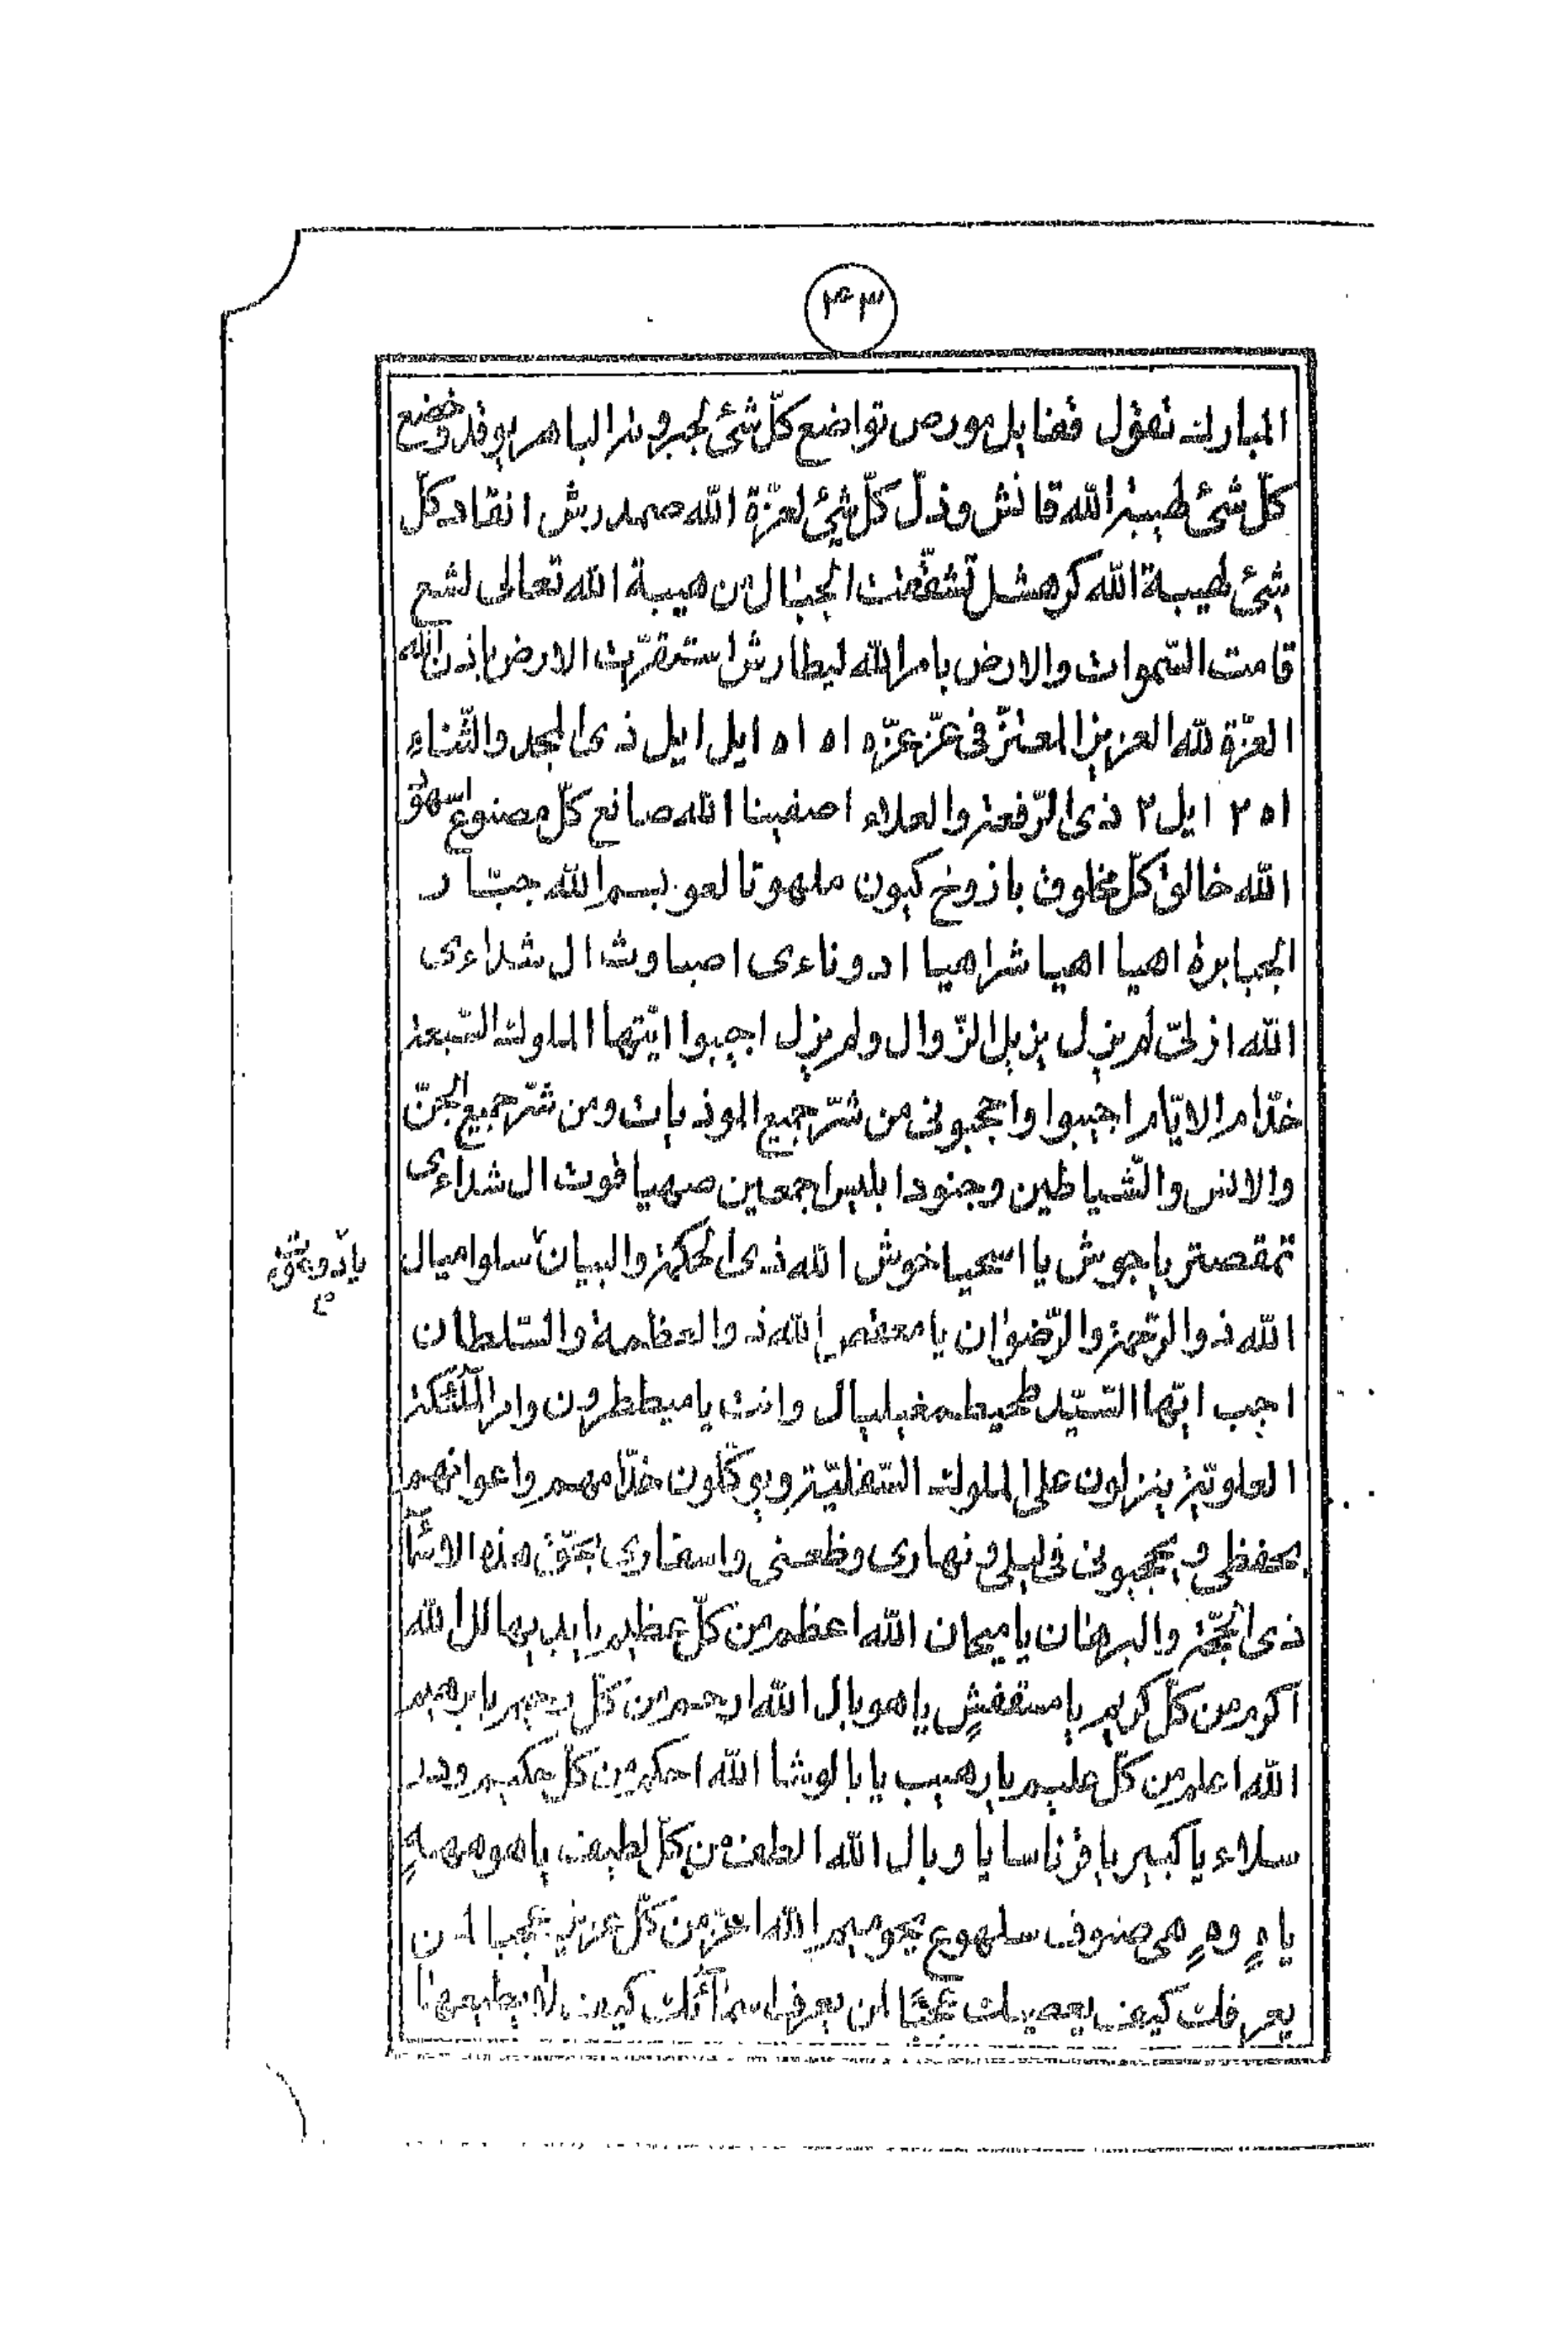 ٣٤٣
المبارك تقول فقنا بل مورص تواضع كلّ شئ لجبروته الباهر يوقد وخضع
كلّ شئ لهيبة الله قانش وذلّ كلّ شئ لعزّة الله صمدرش انقاد كلّ
شئ لهيبة الله كرهشل تشقّقت الجبال من هيبة الله تعالى لشع
قامت السّموات والارض بامر الله ليطارش استقرّت الارض باذن الله
العزّة لله العزيز المعتزّ فى عزّ عزّه اه اه ايل ايل ذى المجد والثّناء
اه ٢ ايل ٢ ذى الرّفعة والعلاء اصفينا الله صانع كلّ مصنوع
الله خالق كلّ مخلوق بازوخ كيون ملهوتا لعو بسم الله جبّار
الجبابرة اهيا اهيا شراهيا ادوناءى اصباوث ال شداءى
الله ازلىّ لم يزل يزيل الزّوال ولم يزل اجيبوا ايّتها الملوك السّبعة
خدّام الايّام اجيبوا واحجبونى من شرّ جميع الموذيات ومن شرّ جميع الجنّ
والانس والشّياطين وجنود ابليس اجمعين صهيا قوت ال شداءى
تمقصتر ياجوش يا اسمحياخوش الله ذى الحكمة والبيان سلواميال
الله ذو الرّحمة والرّضوان يا معفص الله ذو العظمة والسّلطان
اجب ايّها السّيّد طحيطمغيليال وانت يا ميططرون وامر الملئكة
العلويّة ينزلون على الملوك السّفليّة ويوكّلون خدّامهم واعوانهم
بحفظى ويحجبونى فى ليلى ونهارى وظعنى واسفارى بحقّ هذه الاسمآء
ذى الحجّة والبرهان يا ميحان الله اعظم من كلّ عظيم الله
اكرم من كلّ كريم يا مستقفش يا هويال الله ارحم من كلّ رحيم يا برهيم
الله اعلم من كلّ عليم يا رهيب يا بالوشا الله احكم من كلّ حكيم
سلاء يا كبير يا فرناسا يا ويال الله الطف من كلّ لطيف يا هو
ياهٍ وهٍ هى صنوف سلهوع يجوميم الله اعزّ من كلّ عزيز عجبا لمن
يعرفك كيف يعصيك عجبًا لمن يعرف اسمآئك كيف لا يطيعها